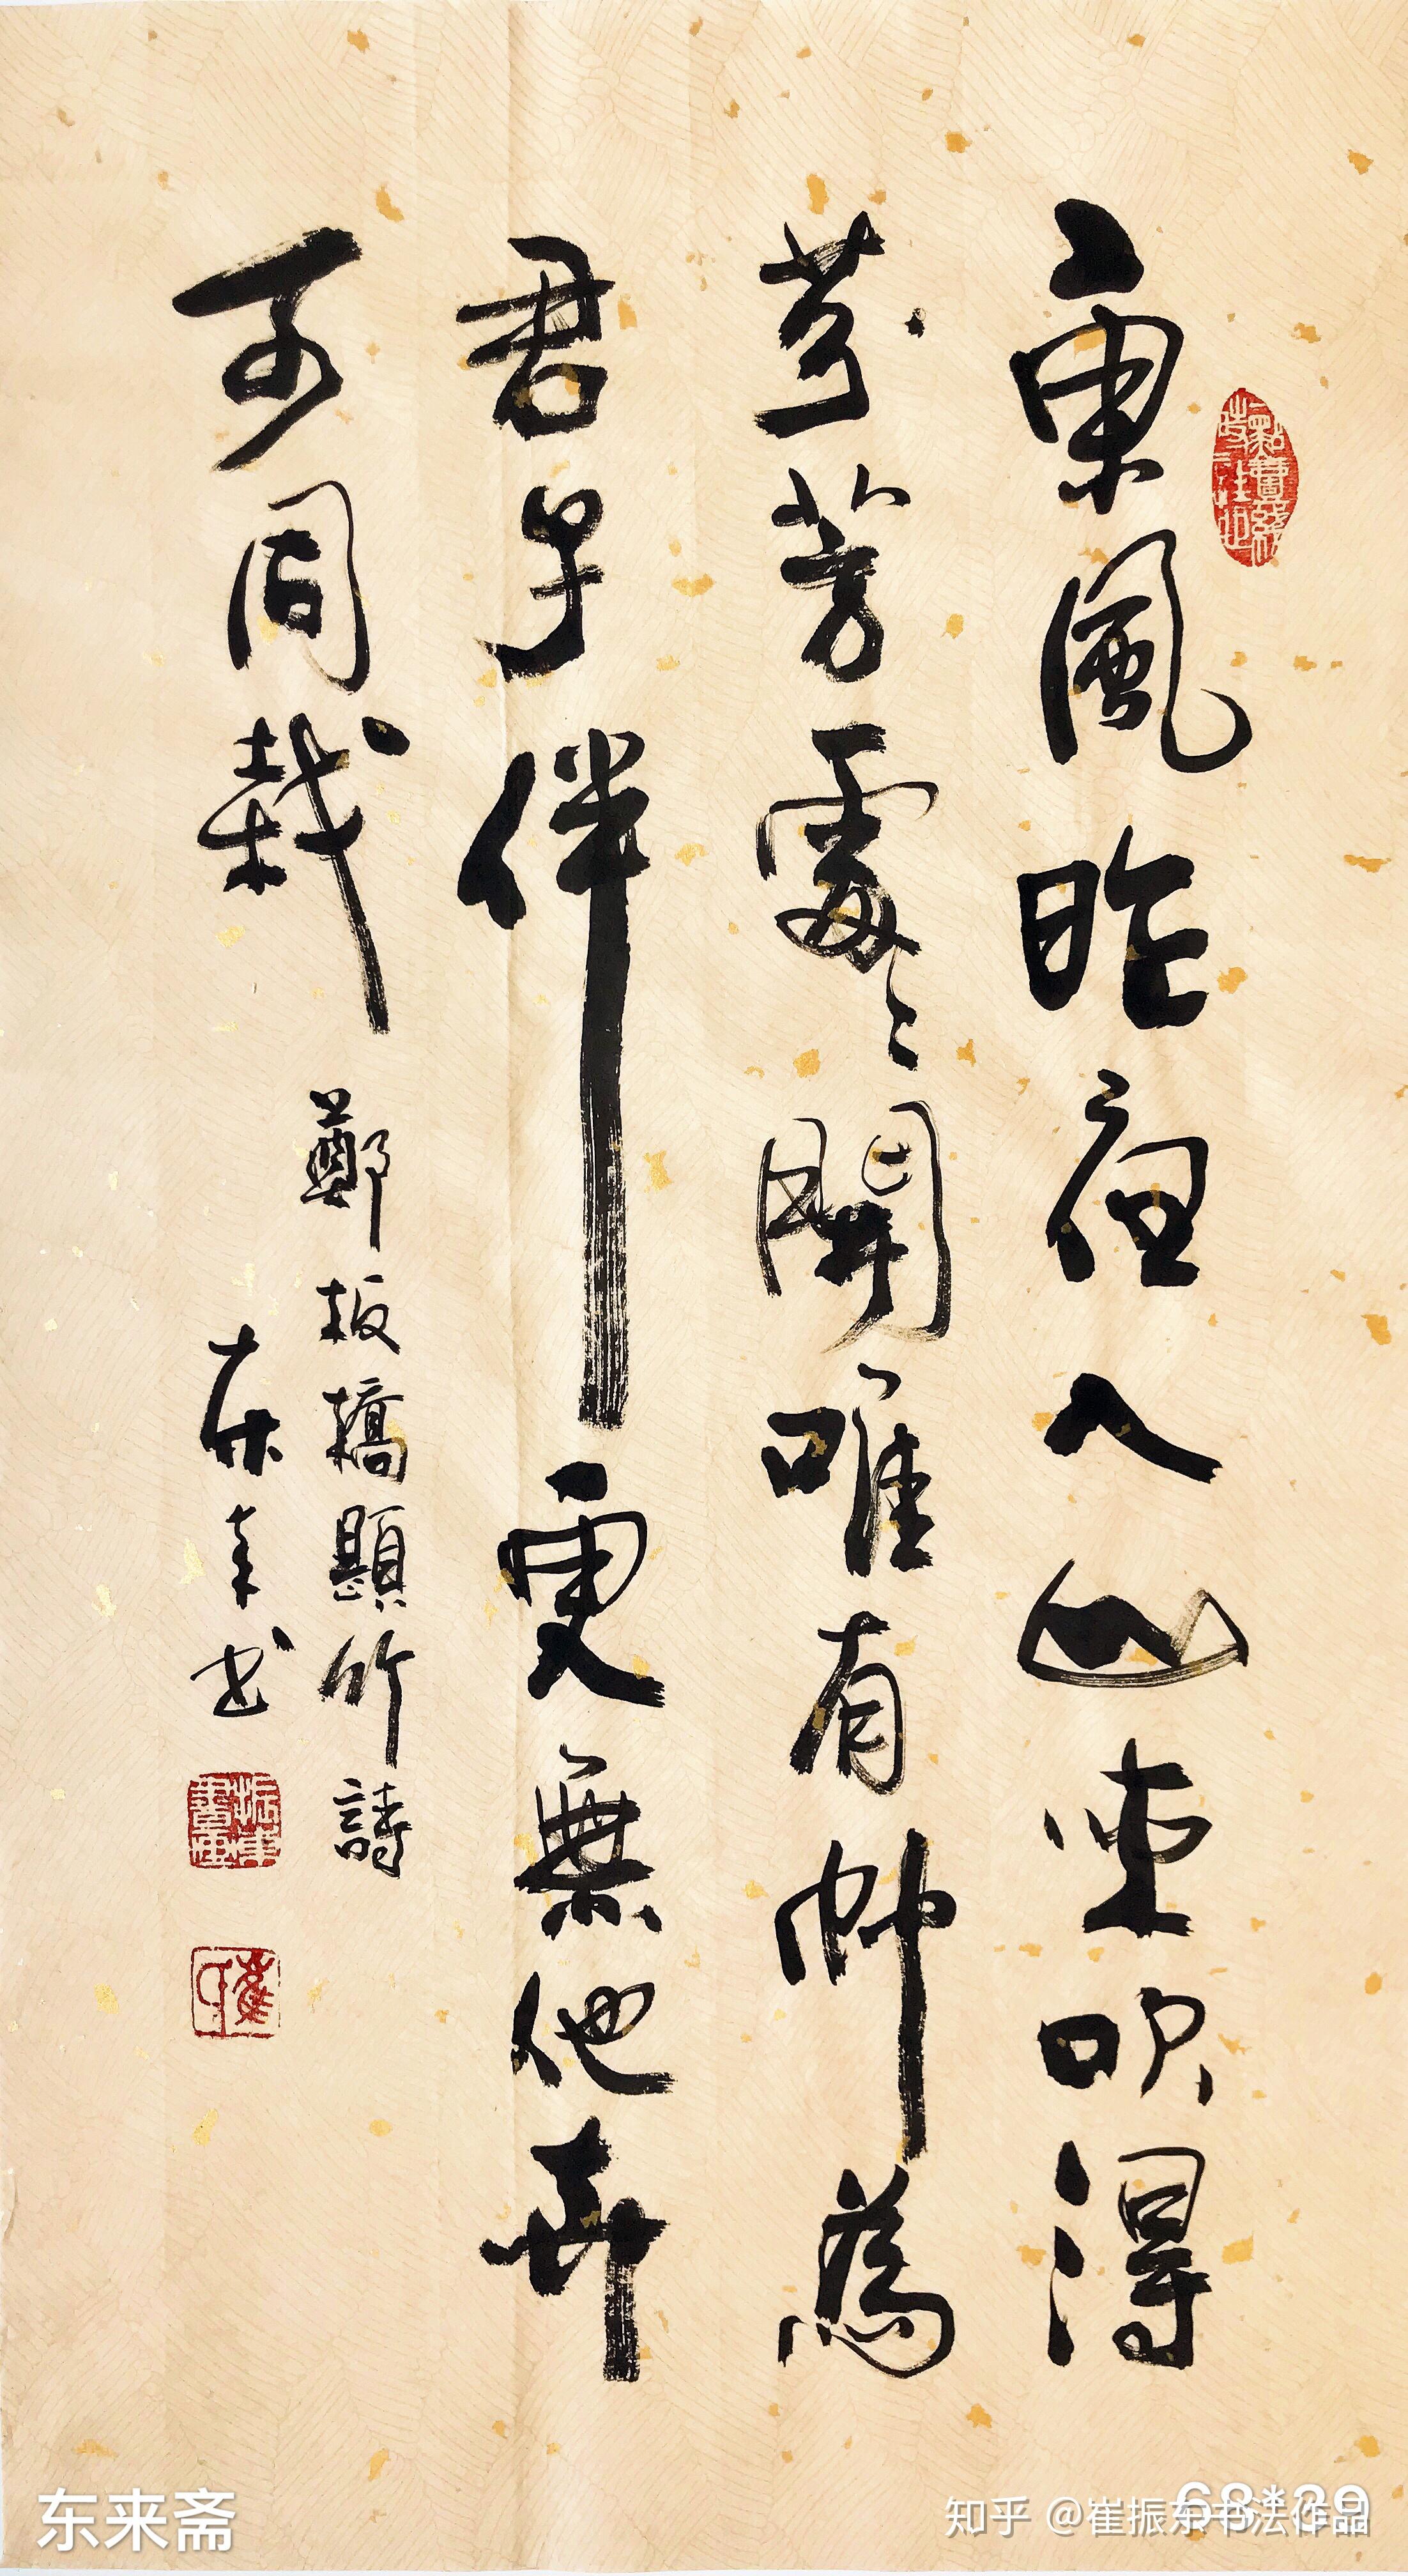 東風昨夜入山來吹得
芳芳處々開唯有竹為
君子伴更無他卉
可同栽
鄭板橋題竹詩
東来书
东来斋
68*39
知乎 @崔振东书法作品